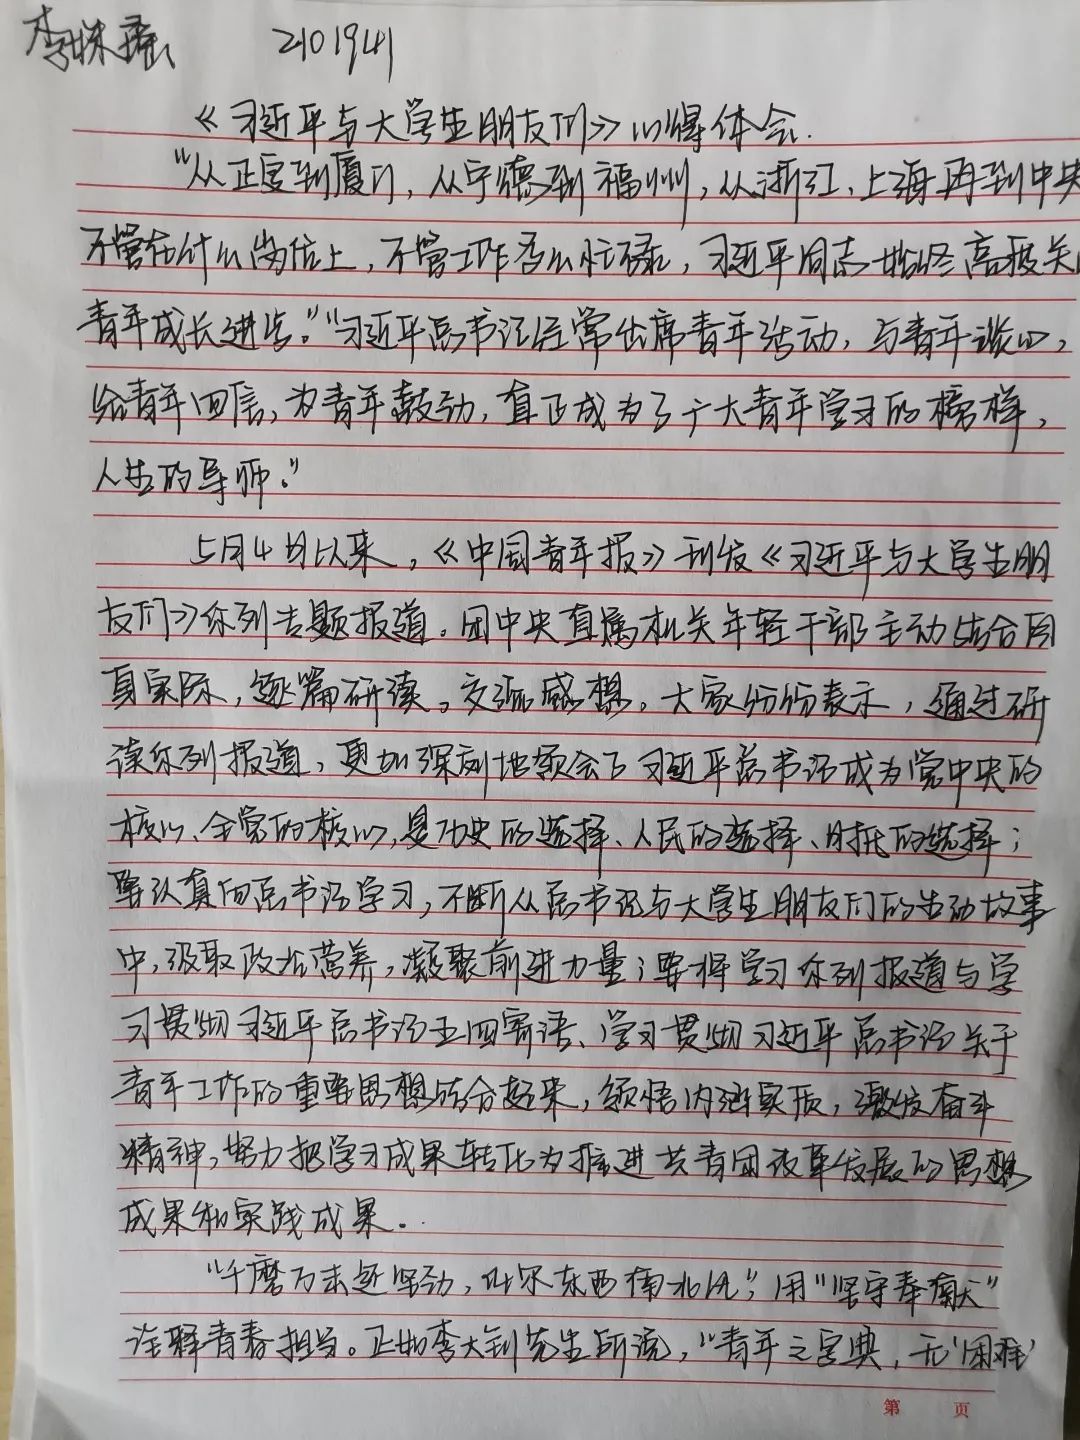 李 2101941
《习近平与大学生朋友们》心得体会.
“从正定到厦门，从宁德到福州，从浙江、上海再到中央
不管在什么岗位上，不管工作多么忙碌，习近平同志始终高度关
青年成长进步。”“习近平总书记经常出席青年活动，与青年谈心，
给青年回信，为青年鼓劲，真正成为了广大青年学习的榜样，
人生的导师。”
5月4日以来，《中国青年报》刊发《习近平与大学生朋
友们》系列专题报道。团中央直属机关年轻干部主动结合自
身实际，逐篇研读。交流感想。大家纷纷表示，通过研
读系列报道，更加深刻地领会了习近平总书记成为党中央的
核心、全党的核心，是历史的选择、人民的选择、时代的选择；
要认真向总书记学习，不断从总书记与大学生朋友们的生动故事
中，汲取政治营养，凝聚前进力量；要将学习系列报道与学
习贯彻习近平总书记五四寄语、学习贯彻习近平总书记关于
青年工作的重要思想结合起来，领悟内涵实质，激发奋斗
精神，努力把学习成果转化为推进共青团改革发展的思想
成果和实践成果。
“千磨万击还坚劲，任尔东西南北风”，用“坚守奉献”
诠释青春担当。正如李大钊先生所说，“青年之字典，无‘困难’
第 页